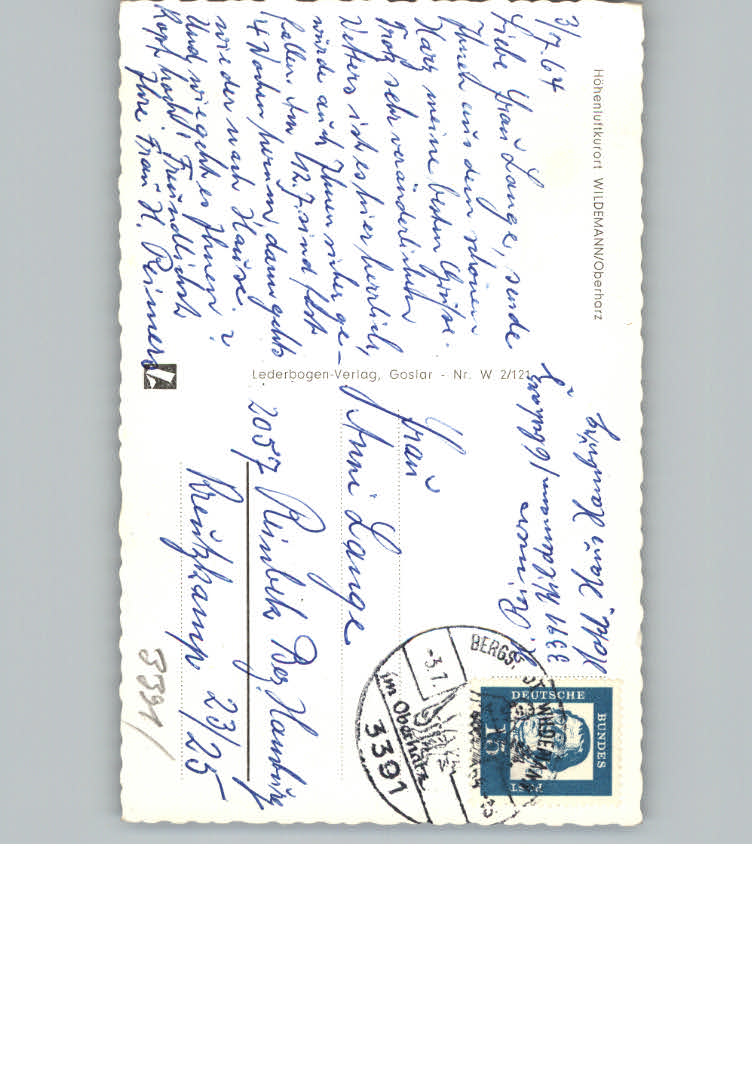 Höhenluftkurort WILDEMANN/Oberharz
3/7.64
Liebe Frau Lange, sende
Ihnen aus dem schönen
Harz meine besten Grüße.
Trotz sehr veränderlichen
Wetters ist es hier herrlich,
würde auch Ihnen sicher ge-
fallen. Am 12.7. sind fast
14 Wochen herum, dann gehts
wieder nach Hause.
Und wie geht es Ihnen?
Kopf hoch! Freundlichst
Ihre Frau H. Reimers
Lederbogen-Verlag, Goslar - Nr. W 2/121
H. Reimers
3391 Wildemann
Hotel
Frau
Anni Lange
2057 Reinbek Bez. Hamburg
Kreutzkamp 23/25
3391
BERGSTADT WILDEMANN
-3.7.
im Oberharz
3391
DEUTSCHE
BUNDES
POST
15